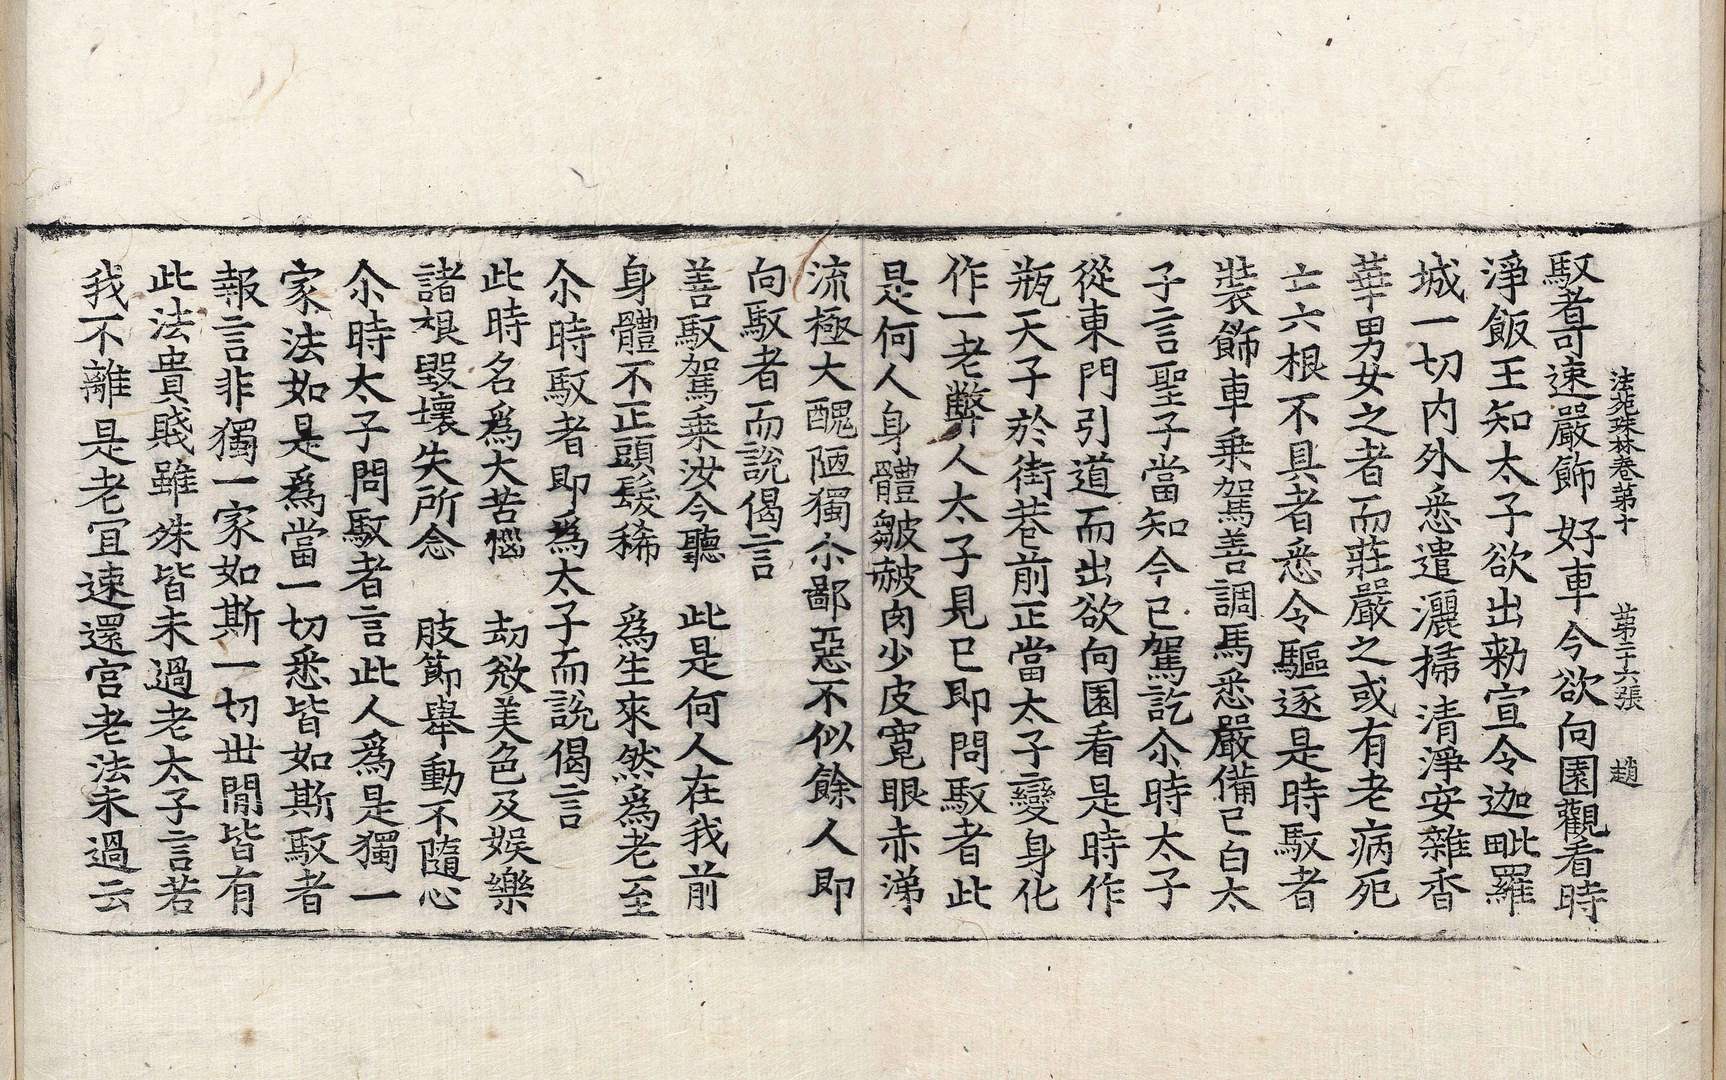 法苑珠林卷第十 第二十六張 趙
馭者可速嚴飾好車今欲向園觀看時
淨飯王知太子欲出勑宣令迦毗羅
城一切内外悉遣灑掃清淨安雜香
華男女之者而莊嚴之或有老病死
亡六根不具者悉令驅逐是時馭者
裝飾車乘駕善調馬悉嚴備已白太
子言聖子當知今已駕訖尒時太子
從東門引道而出欲向園看是時作
瓶天子於街巷前正當太子變身化
作一老弊人太子見已即問馭者此
是何人身體皺皵肉少皮寬眼赤涕
流極大醜陋獨尒鄙惡不似餘人即
向馭者而說偈言
善馭駕乗汝今聽 此是何人在我前
身體不正頭髮稀 爲生來然爲老至
尒時馭者即爲太子而說偈言
此時名爲大苦惱 劫欻美色及娛樂
諸根毀壞失所念 肢節舉動不隨心
尒時太子問馭者言此人爲是獨一
家法如是爲當一切悉皆如斯馭者
報言非獨一家如斯一切世間皆有
此法貴賤雖殊皆未過老太子言若
我不離是老宜速還宮老法未過云